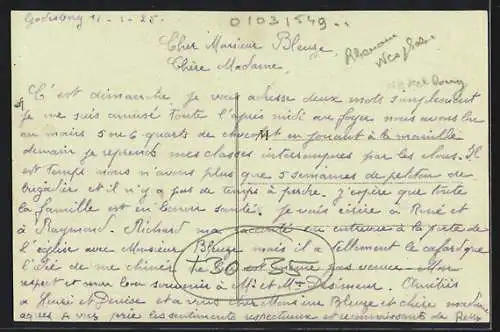 Godesberg 11-1-25.
01031549..
Cher Monsieur Bleuze,
Chère Madame,
C'est dimanche je vous adresse deux mots simplement
je me suis amusé toute l'après midi au foyer nous avons bu
au moins 5 ou 6 quarts de chocolat en jouant à la manille
demain je reprends mes classes interrompues par les clous. Il
est temps nous n'avons plus que 5 semaines de peloton de
brigadier et il n'y a pas de temps à perdre. j'espère que toute
la famille est en bonne santé. je vais écrire à René et
à Raymond. Richard m'a raconté son entrevue à la porte de
l'église avec Monsieur Bleuze mais il a tellement le cafard que
l'idée de me
30 35
respect et mon bon souvenir à Mr et Mme Amitiés
à Henri et Denise et à vous cher Monsieur Bleuze et chère madame
les sentiments respectueux et reconnaissants de